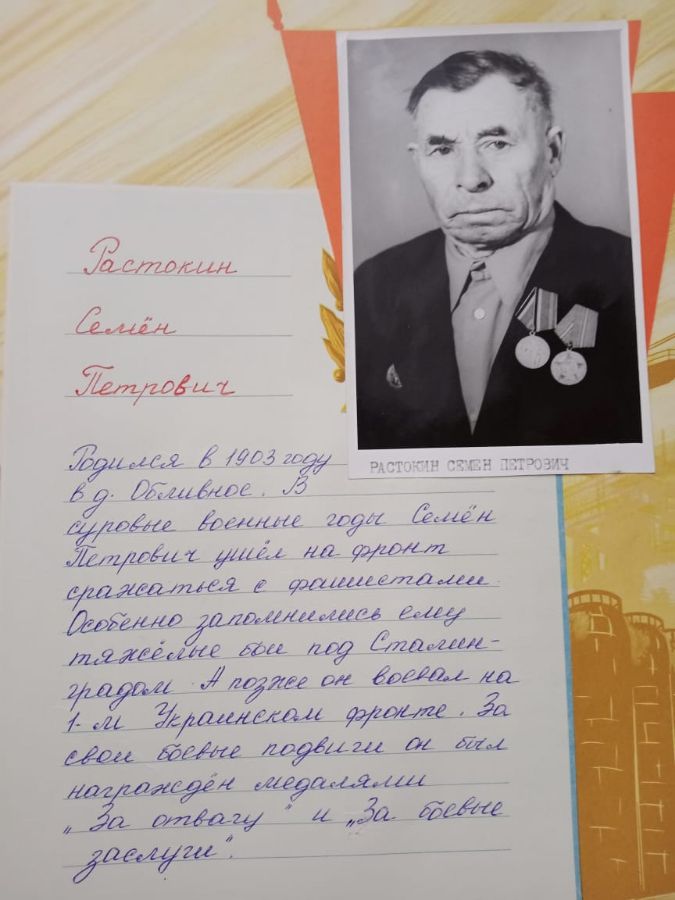 Растокин
Семён
Петрович
РАСТОКИН СЕМЕН ПЕТРОВИЧ
Родился в 1903 году
в д. Обливное. В
суровые военные годы Семён
Петрович ушёл на фронт
сражаться с фашистами.
Особенно запомнились ему
тяжёлые бои под Сталин-
градом. А позже он воевал на
1-м Украинском фронте. За
свои боевые подвиги он был
награждён медалями
„За отвагу" и „За боевые
заслуги".